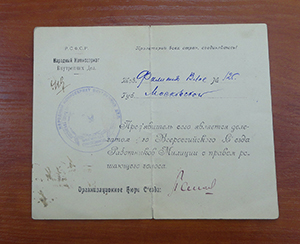 Р С Ф С Р
Народный Комиссариат
Внутренних Дел.
Пролетарии всех стран, соединяйтесь!
Тов. Фалина Влас № 125
Губ. Московской
Предъявитель сего является деле-
гатом 1го Всероссийского Съезда
Работников Милиции с правом ре-
шающего голоса.
Организационное Бюро Съезда: